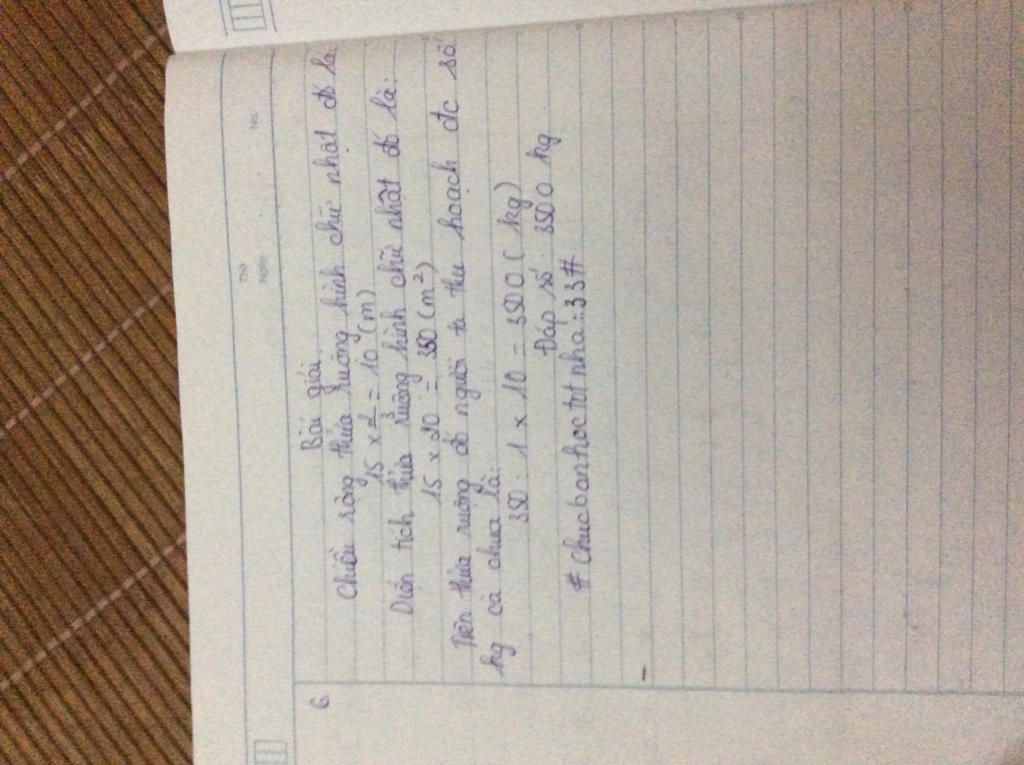 Thứ
Ngày
No.
6.
Bài giải
Chiều rộng thửa ruộng hình chữ nhật đó là:
15 x 2/3 = 10 (m)
Diện tích thửa ruộng hình chữ nhật đó là:
15 x 20 = 350 (m²)
Trên thửa ruộng đó người ta thu hoạch đc số
kg cà chua là:
350 : 1 x 10 = 3500 (kg)
Đáp số: 3500 kg
# chucbanhoctotnha:33#